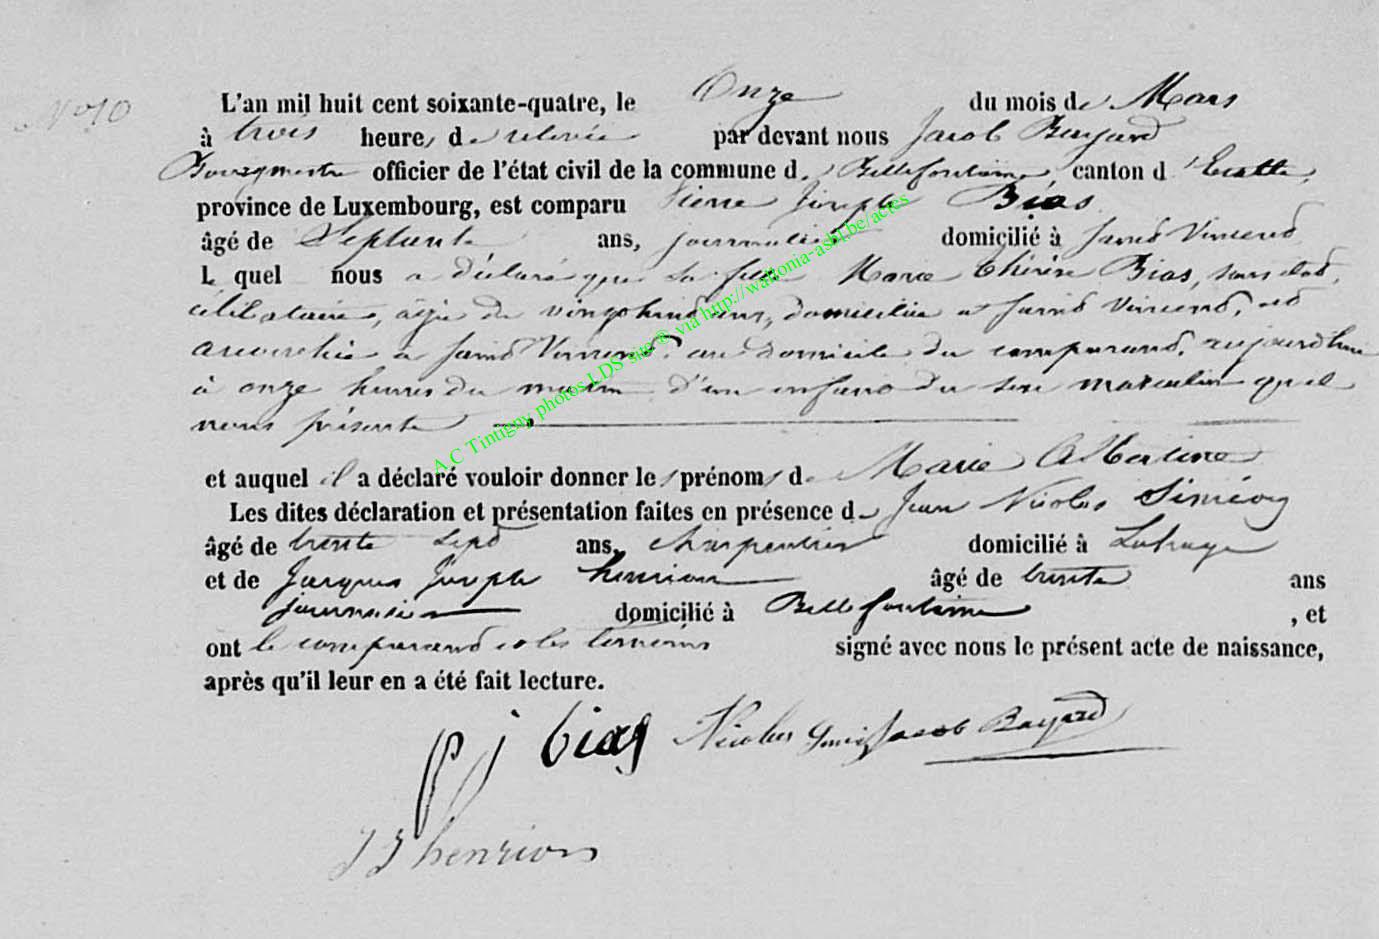 N° 10
L'an mil huit cent soixante-quatre, le Onze du mois de Mars
à trois heures de relevée par devant nous Jacob Bayard
Bourgmestre officier de l'état civil de la commune de Bellefontaine, canton d'Etalle,
province de Luxembourg, est comparu Pierre Joseph Bias
âgé de Septante ans, journalier domicilié à Saint Vincent
Lequel nous a déclaré que sa fille Marie Thérèse Bias, sans état,
célibataire, âgée de vingt huit ans, domiciliée à Saint Vincent, est
accouchée à Saint Vincent, au domicile du comparant, aujourd'hui
à onze heures du matin d'un enfant du sexe masculin qu'il
nous présente
et auquel il a déclaré vouloir donner les prénoms de Marie
Les dites déclaration et présentation faites en présence de Jean Nicolas Siméon
âgé de trente sept ans, charpentier domicilié à Lahage
et de Jacques Joseph henrion âgé de trente ans
journalier domicilié à Bellefontaine, et
ont le comparant et les témoins signé avec nous le présent acte de naissance,
après qu'il leur en a été fait lecture.
p j bias Nicolas Jacob Bayard
J J henrion
A.C Tintigny photos LDS site ® via http://wallonia-asbl.be/actes